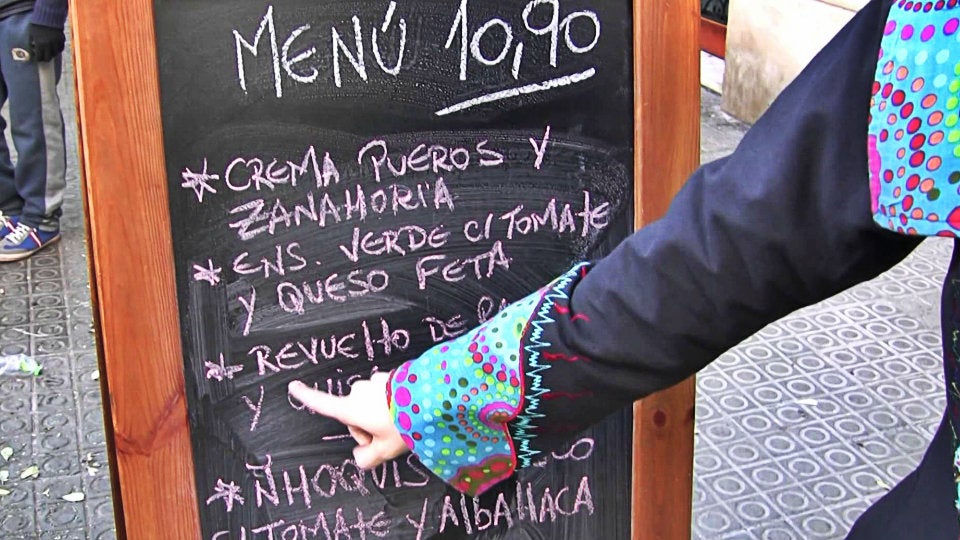 MENÚ 10,90
* CREMA PUEROS Y
ZANAHORIA
* ENS. VERDE C/ TOMATE
Y QUESO FETA
* REVUELTO DE
Y
* ÑHOQUIS
C/ TOMATE Y AlbAHACA